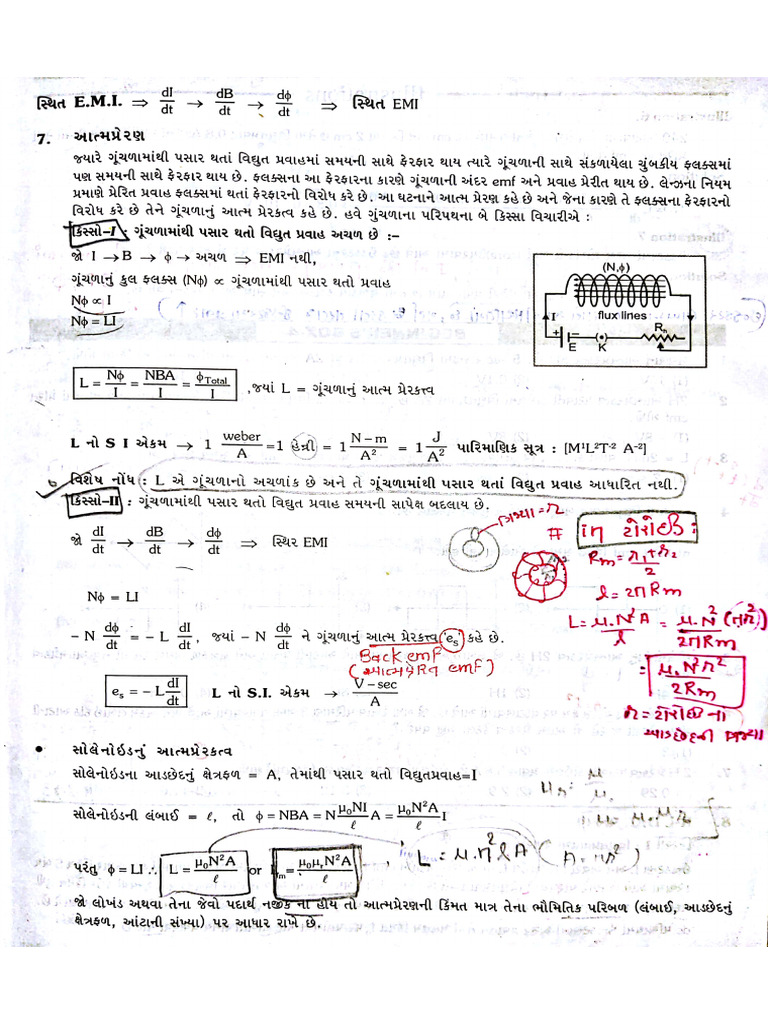 સ્થિત E.M.I. ⇒ dI/dt → dB/dt → dϕ/dt ⇒ સ્થિત EMI
7. આત્મપ્રેરણ
જ્યારે ગૂંચળામાંથી પસાર થતાં વિદ્યુત પ્રવાહમાં સમયની સાથે ફેરફાર થાય ત્યારે ગૂંચળાની સાથે સંકળાયેલા ચુંબકીય ફ્લક્સમાં
પણ સમયની સાથે ફેરફાર થાય છે. ફ્લક્સના આ ફેરફારના કારણે ગૂંચળાની અંદર emf અને પ્રવાહ પ્રેરીત થાય છે. લેન્ઝના નિયમ
પ્રમાણે પ્રેરિત પ્રવાહ ફ્લક્સમાં થતાં ફેરફારનો વિરોધ કરે છે. આ ઘટનાને આત્મ પ્રેરણ કહે છે અને જેના કારણે તે ફ્લક્સના ફેરફારનો
વિરોધ કરે છે તેને ગૂંચળાનું આત્મ પ્રેરકત્વ કહે છે. હવે ગુંચળાના પરિપથના બે કિસ્સા વિચારીએ :
કિસ્સો-I : ગૂંચળામાંથી પસાર થતો વિદ્યુત પ્રવાહ અચળ છે :–
જો I → B → ϕ → અચળ ⇒ EMI નથી,
ગૂંચળાનું કુલ ફ્લક્સ (Nϕ) ∝ ગૂંચળામાંથી પસાર થતો પ્રવાહ
Nϕ ∝ I
Nϕ = LI
(N,ϕ)
flux lines
I
+
E
K
Rh
L = Nϕ/I = NBA/I = ϕTotal/I ,જ્યાં L = ગૂંચળાનું આત્મ પ્રેરકત્વ
L નો S I એકમ → 1 weber/A = 1 હેન્રી = 1 N – m/A² = 1 J/A² પારિમાણિક સૂત્ર : [M¹L²T⁻² A⁻²]
વિશેષ નોંધ : L એ ગૂંચળાનો અચળાંક છે અને તે ગૂંચળામાંથી પસાર થતાં વિદ્યુત પ્રવાહ આધારિત નથી.
કિસ્સો-II : ગૂંચળામાંથી પસાર થતો વિદ્યુત પ્રવાહ સમયની સાપેક્ષ બદલાય છે.
જો dI/dt → dB/dt → dϕ/dt ⇒ સ્થિર EMI
ત્રિજ્યા = r
# in ટોરોઈડ :
Rm = r₁+r₂/2
l = 2πRm
L = μ₀N²A/l = μ₀N²(πr²)/2πRm
= μ₀N²r²/2Rm
r = ટોરોઈડના
આડછેદની ત્રિજ્યા
Nϕ = LI
– N dϕ/dt = – L dI/dt, જ્યાં – N dϕ/dt ને ગૂંચળાનું આત્મ પ્રેરકત્વ 'es' કહે છે.
Back emf
(આત્મપ્રેરિત emf)
es = – L dI/dt L નો S.I. એકમ → V – sec/A
• સોલેનોઇડનું આત્મપ્રેરકત્વ
સોલેનોઇડના આડછેદનું ક્ષેત્રફળ = A, તેમાંથી પસાર થતો વિદ્યુતપ્રવાહ=I
μr = μ/μ₀
સોલેનોઇડની લંબાઈ = ℓ, તો ϕ = NBA = N μ₀NI/ℓ A = μ₀N²A/ℓ I
μ = μ₀μr
પરંતુ ϕ = LI ∴ L = μ₀N²A/ℓ or Lm = μ₀μrN²A/ℓ
L = μ₀n²lA (A = πr²)
જો લોખંડ અથવા તેના જેવો પદાર્થ નજીક ના હોય તો આત્મપ્રેરણની કિંમત માત્ર તેના ભૌમિતિક પરિબળ (લંબાઈ, આડછેદનું
ક્ષેત્રફળ, આંટાની સંખ્યા) પર આધાર રાખે છે.